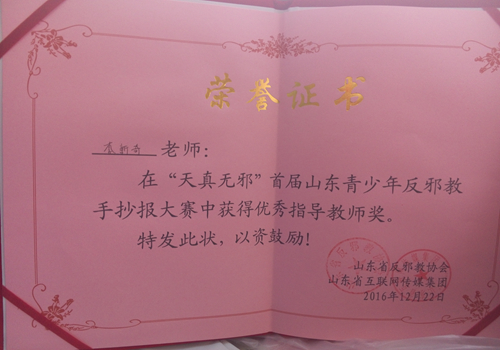 荣誉证书
老师:
在“天真无邪”首届山东青少年反邪教
手抄报大赛中获得优秀指导教师奖。
特发此状,以资鼓励!
山东省反邪教协会
山东省互联网传媒集团
2016年12月22日